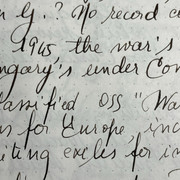 G.? No record c
1945 the war's
ngary's under Con
lassified OSS "Wa
s for Europe, inc
iting exiles for in